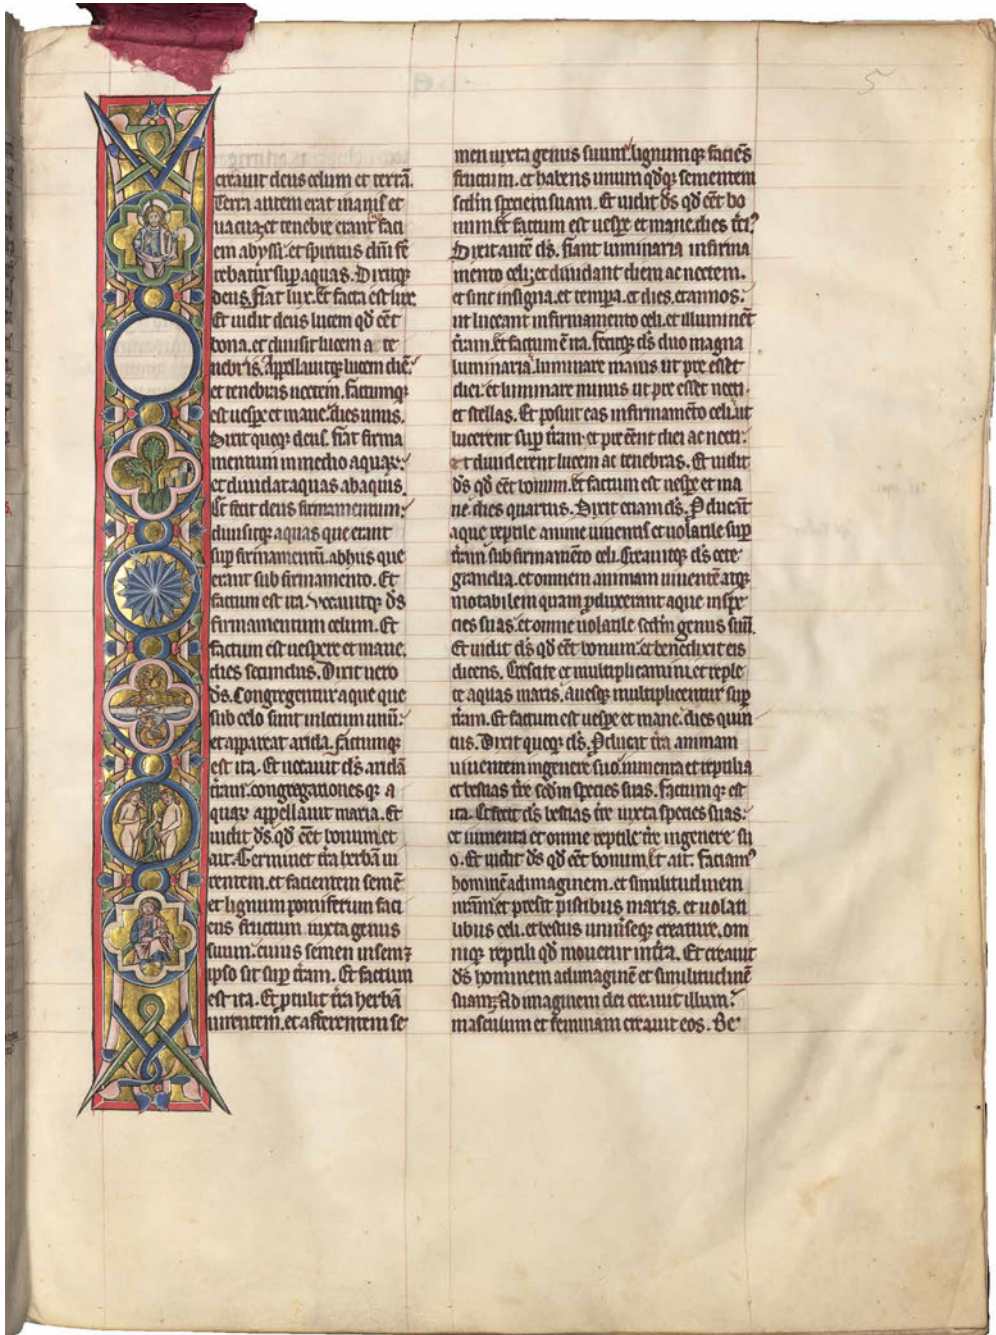 5
creauit deus celum et terrā.
Terra autem erat inanis et
uacua: et tenebre erant sup faci
em abyssi. et spiritus dñi fe
rebatur sup aquas. Dixitqꝫ
deus. fiat lux. Et facta est lux.
Et uidit deus lucem qđ eēt
bona. et diuisit lucem a te
nebris. Appellauitqꝫ lucem diē.
et tenebras noctem. factumqꝫ
est uespe et mane. dies unus.
Dixit quoqꝫ deus. fiat firma
mentum in medio aquaꝝ.
et diuidat aquas ab aquis.
Et fecit deus firmamentum.
diuisitqꝫ aquas que erant
sup firmamentū. ab hiis que
erant sub firmamento. Et
factum est ita. Vocauitqꝫ d̄s
firmamentum celum. Et
factum est uespere et mane.
dies secundus. Dixit uero
d̄s. Congregentur aque que
sub celo sunt in locum unū.
et appareat arida. factumqꝫ
est ita. Et uocauit d̄s aridā
t̄ram. congregationesqꝫ a
quaꝝ appellauit maria. Et
uidit d̄s qđ eēt bonum. et
ait. Germinet t̄ra herbā ui
rentem. et facientem semē.
et lignum pomiferum faci
ens fructum iuxta genus
suum. cuius semen in semet
ipso sit sup t̄ram. Et factum
est ita. Et ꝓtulit t̄ra herbā
uirentem. et afferentem se
men iuxta genus suum. lignumqꝫ faciēs
fructum. et habens unum qđqꝫ sementem
scđm speciem suam. Et uidit d̄s qđ eēt bo
num. Et factum est uespe et mane. dies t̄ci⁹.
Dixit autē d̄s. fiant luminaria in firma
mento celi. et diuidant diem ac noctem.
et sint in signa. et tempa. et dies. et annos.
ut luceant in firmamento celi. et illuminēt
t̄ram. Et factum ē ita. fecitqꝫ d̄s duo magna
luminaria. luminare maius ut pre esset
diei. et luminare minus ut pre esset nocti.
et stellas. Et posuit eas in firmamēto celi. ut
lucerent sup t̄ram. et pre eēnt diei ac nocti.
et diuiderent lucem ac tenebras. Et uidit
d̄s qđ eēt bonum. Et factum est uespe et ma
ne dies quartus. Dixit etiam d̄s. Ꝓducāt
aque reptile anime uiuentis et uolatile sup
t̄ram sub firmamēto celi. Creauitqꝫ d̄s cete
grandia. et omnem animam uiuentē atqꝫ
motabilem quam ꝓduxerant aque in spe
cies suas. et omne uolatile scđm genus suū.
Et uidit d̄s qđ eēt bonum. et benedixit eis
dicens. Crescite et multiplicamini. et reple
te aquas maris. auesqꝫ multiplicentur sup
t̄ram. Et factum est uespe et mane. dies quin
tus. Dixit quoqꝫ d̄s. Ꝓducat t̄ra animam
uiuentem in genere suo. iumenta et reptilia
et bestias t̄re scđm species suas. factumqꝫ est
ita. Et fecit d̄s bestias t̄re iuxta species suas.
et iumenta et omne reptile t̄re in genere su
o. Et uidit d̄s qđ eēt bonum. Et ait. faciam⁹
hominē ad imaginem. et similitudinem
nr̄am. et presit piscibus maris. et uolati
libus celi. et bestiis uniūseqꝫ creature. om
niqꝫ reptili qđ mouetur in t̄ra. Et creauit
d̄s hominem ad imaginē et similitudinē
suam. Ad imaginem dei creauit illum.
masculum et feminam creauit eos. Be